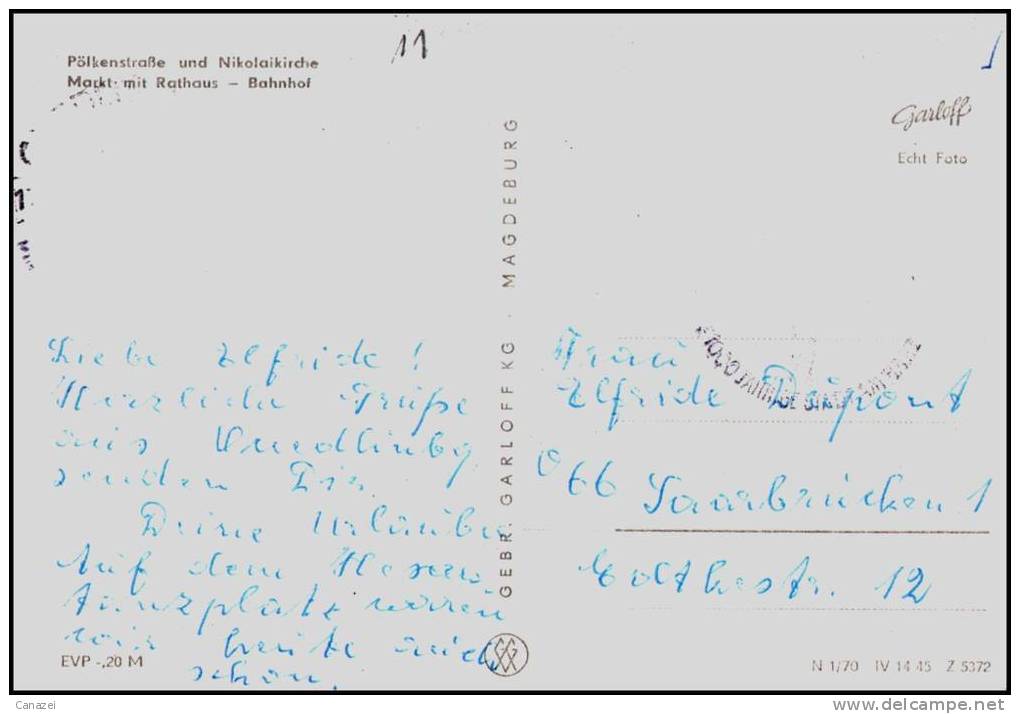 11
Pölkenstraße und Nikolaikirche
Markt mit Rathaus – Bahnhof
Garloff
Echt Foto
GEBR. GARLOFF KG MAGDEBURG
Liebe Elfride!
Herzliche Grüße
aus Quedlinbg
senden Dir
Deine Urlauber
Auf dem Hexen
tanzplatz waren
wir heute auch
schon.
Frau
Elfride Düpont
66 Saarbrücken 1
Goethestr. 12
EVP -,20 M
N 1/70 IV 14 45 Z 5372
Canazei
www.delcampe.net